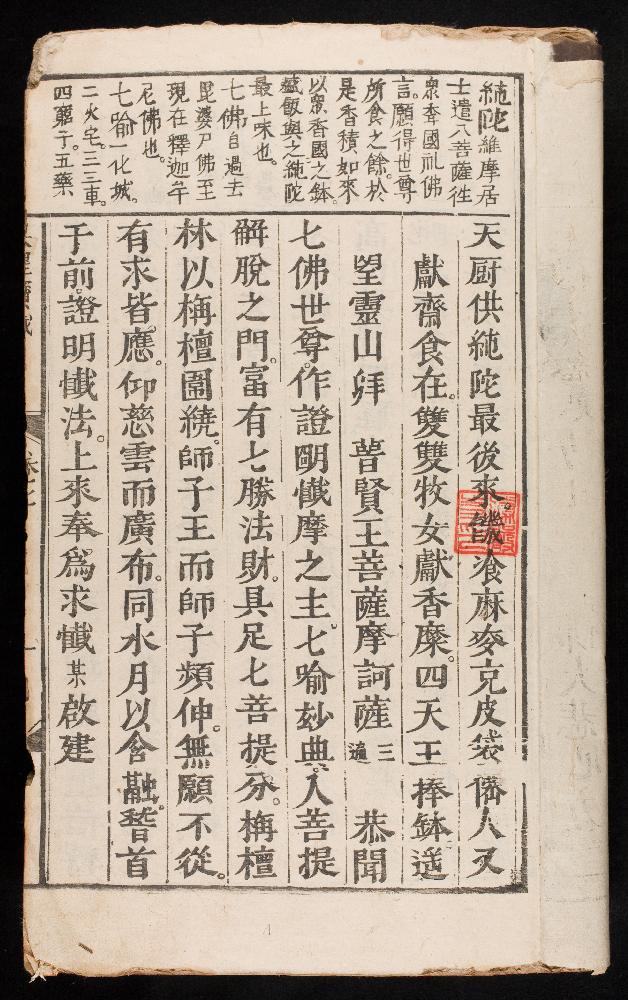 純陀維摩居
士遣八菩薩徃
衆香國礼佛
言願得世尊
所食之餘於
是香積如來
以衆香國之鉢
盛飯與之純陀
最上味也
七佛自過去
毘婆尸佛至
現在釋迦牟
尼佛也
七喻一化城
二火宅。三三車
四窮子。五藥
天厨供純陀最後來。譏飡麻麥克皮袋僊人又
獻齋食在。雙雙牧女獻香糜。四天王捧鉢遥
望靈山拜　普賢王菩薩摩訶薩三遍　恭聞
七佛世尊。作證明懺摩之主。七喻玅典。入菩提
解脫之門。富有七勝法財。具足七菩提分。栴檀
林以栴檀圍繞。師子王而師子頻伸。無願不從。
有求皆應。仰慈雲而廣布。同水月以含融。稽首
于前。證明懺法。上來奉爲求懺某啟建